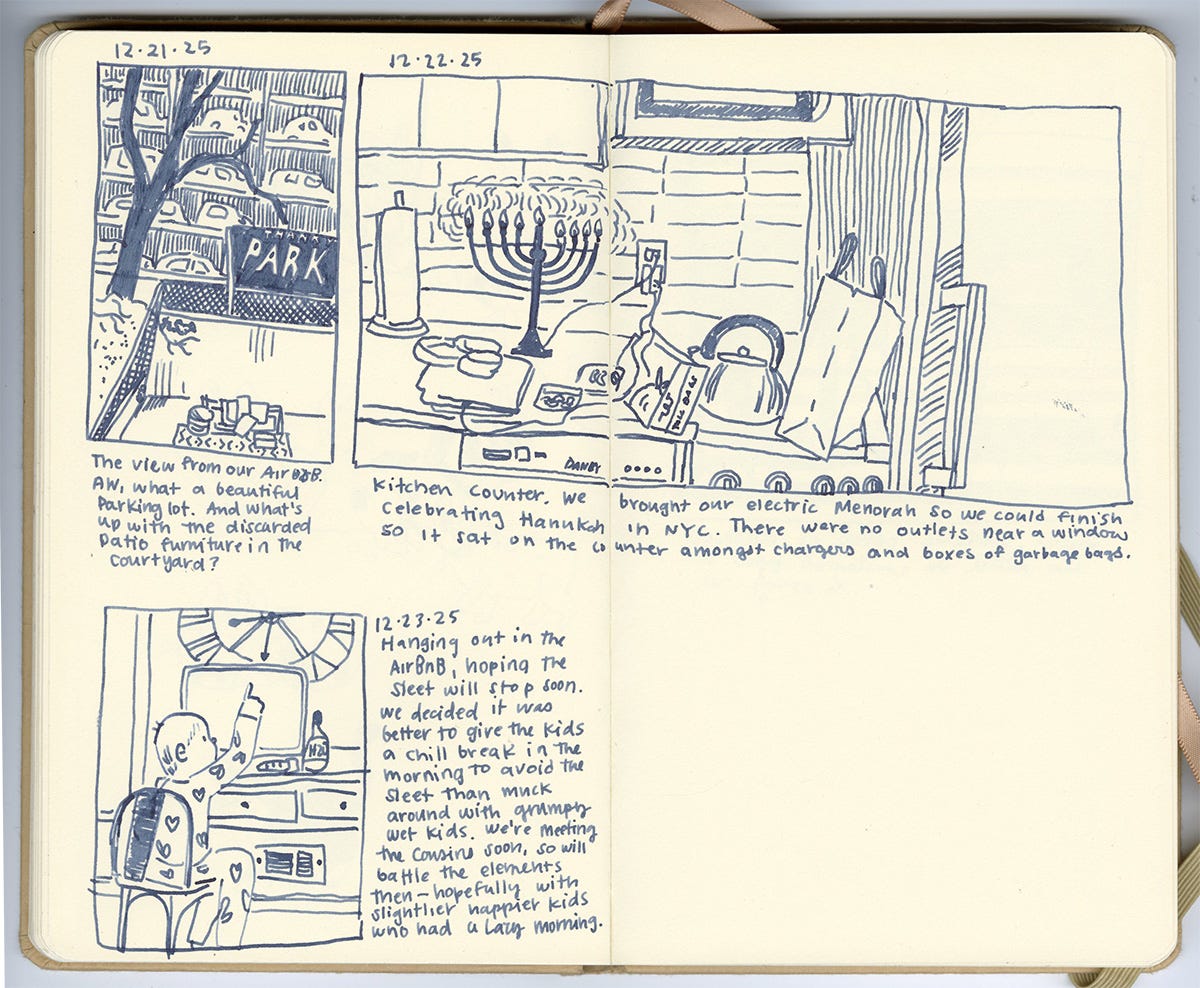 12.21.25
PARK
The view from our AirBnB.
AW, what a beautiful
Parking lot. And what's
up with the discarded
patio furniture in the
courtyard?
12.22.25
DANBY
Kitchen counter. We brought our electric Menorah so we could finish
Celebrating Hanukah in NYC. There were no outlets near a window
so it sat on the counter amongst chargers and boxes of garbage bags.
12.23.25
Hanging out in the
AirBnB, hoping the
Sleet will stop soon.
We decided it was
better to give the kids
a chill break in the
morning to avoid the
sleet than muck
around with grumpy
wet kids. We're meeting
the cousins soon, so will
battle the elements
then – hopefully with
slightlier happier kids
who had a lazy morning.